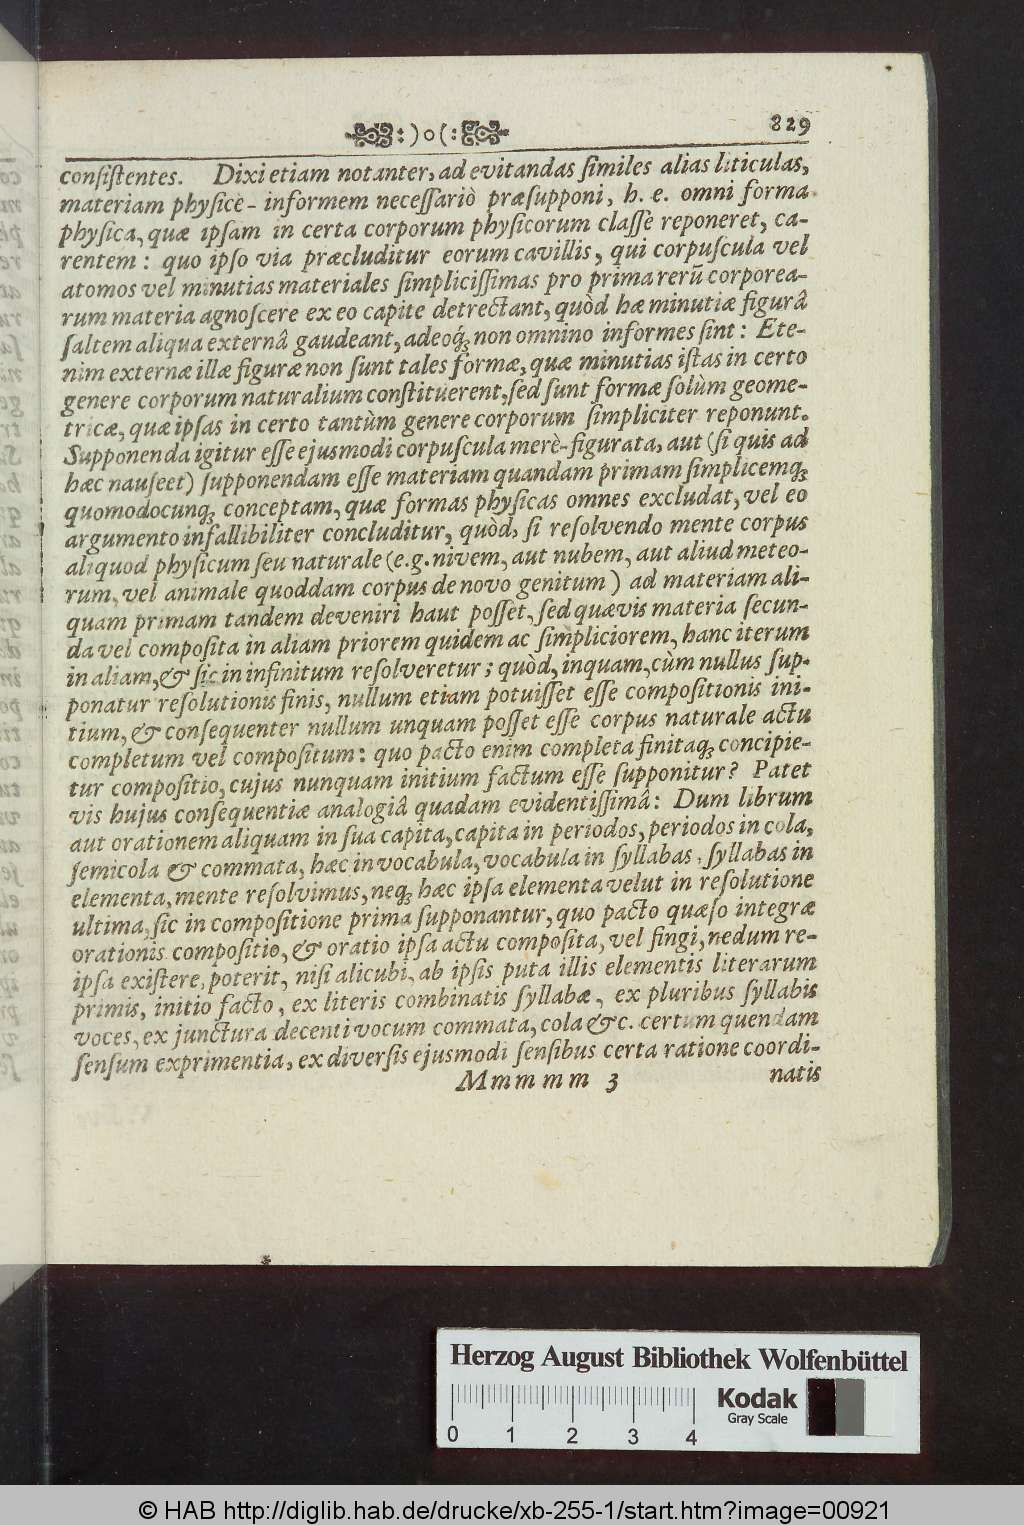 :)o(: 829
conſiſtentes. Dixi etiam notanter, ad evitandas ſimiles alias liticulas,
materiam phyſicè-informem neceſſariò præſupponi, h. e. omni forma
phyſica, quæ ipſam in certa corporum phyſicorum claſſe reponeret, ca-
rentem: quo ipſo via præcluditur eorum cavillis, qui corpuſcula vel
atomos vel minutias materiales ſimpliciſſimas pro prima rerũ corporea-
rum materia agnoſcere ex eo capite detrectant, quòd hæ minutiæ figurâ
ſaltem aliqua externâ gaudeant, adeoq́; non omnino informes ſint: Ete-
nim externæ illæ figuræ non ſunt tales formæ, quæ minutias iſtas in certo
genere corporum naturalium conſtituerent, ſed ſunt formæ ſolùm geome-
tricæ, quæ ipſas in certo tantùm genere corporum ſimpliciter reponunt.
Supponenda igitur eſſe ejusmodi corpuſcula merè-figurata, aut (ſi quis ad
hæc nauſeet) ſupponendam eſſe materiam quandam primam ſimplicemq́;
quomodocunq́; conceptam, quæ formas phyſicas omnes excludat, vel eo
argumento infallibiliter concluditur, quòd, ſi reſolvendo mente corpus
aliquod phyſicum ſeu naturale (e.g. nivem, aut nubem, aut aliud meteo-
rum, vel animale quoddam corpus de novo genitum) ad materiam ali-
quam primam tandem deveniri haut poſſet, ſed quævis materia ſecun-
da vel compoſita in aliam priorem quidem ac ſimpliciorem, hanc iterum
in aliam, & ſic in infinitum reſolveretur; quòd, inquam, cùm nullus ſup-
ponatur reſolutionis finis, nullum etiam potuiſſet eſſe compoſitionis ini-
tium, & conſequenter nullum unquam poſſet eſſe corpus naturale actu
completum vel compoſitum: quo pacto enim completa finitaq́; concipie-
tur compoſitio, cujus nunquam initium factum eſſe ſupponitur? Patet
vis hujus conſequentiæ analogiâ quadam evidentiſſimâ: Dum librum
aut orationem aliquam in ſua capita, capita in periodos, periodos in cola,
ſemicola & commata, hæc in vocabula, vocabula in ſyllabas, ſyllabas in
elementa, mente reſolvimus, neq́; hæc ipſa elementa velut in reſolutione
ultima, ſic in compoſitione prima ſupponantur, quo pacto quæſo integræ
orationis compoſitio, & oratio ipſa actu compoſita, vel fingi, nedum re-
ipſa exiſtere, poterit, niſi alicubi, ab ipſis puta illis elementis literarum
primis, initio facto, ex literis combinatis ſyllabæ, ex pluribus ſyllabis
voces, ex junctura decenti vocum commata, cola &c. certum quendam
ſenſum exprimentia, ex diverſis ejusmodi ſenſibus certa ratione coordi-
Mmmmm 3 natis
Herzog August Bibliothek Wolfenbüttel
Kodak
Gray Scale
0 1 2 3 4
© HAB http://diglib.hab.de/drucke/xb-255-1/start.htm?image=00921